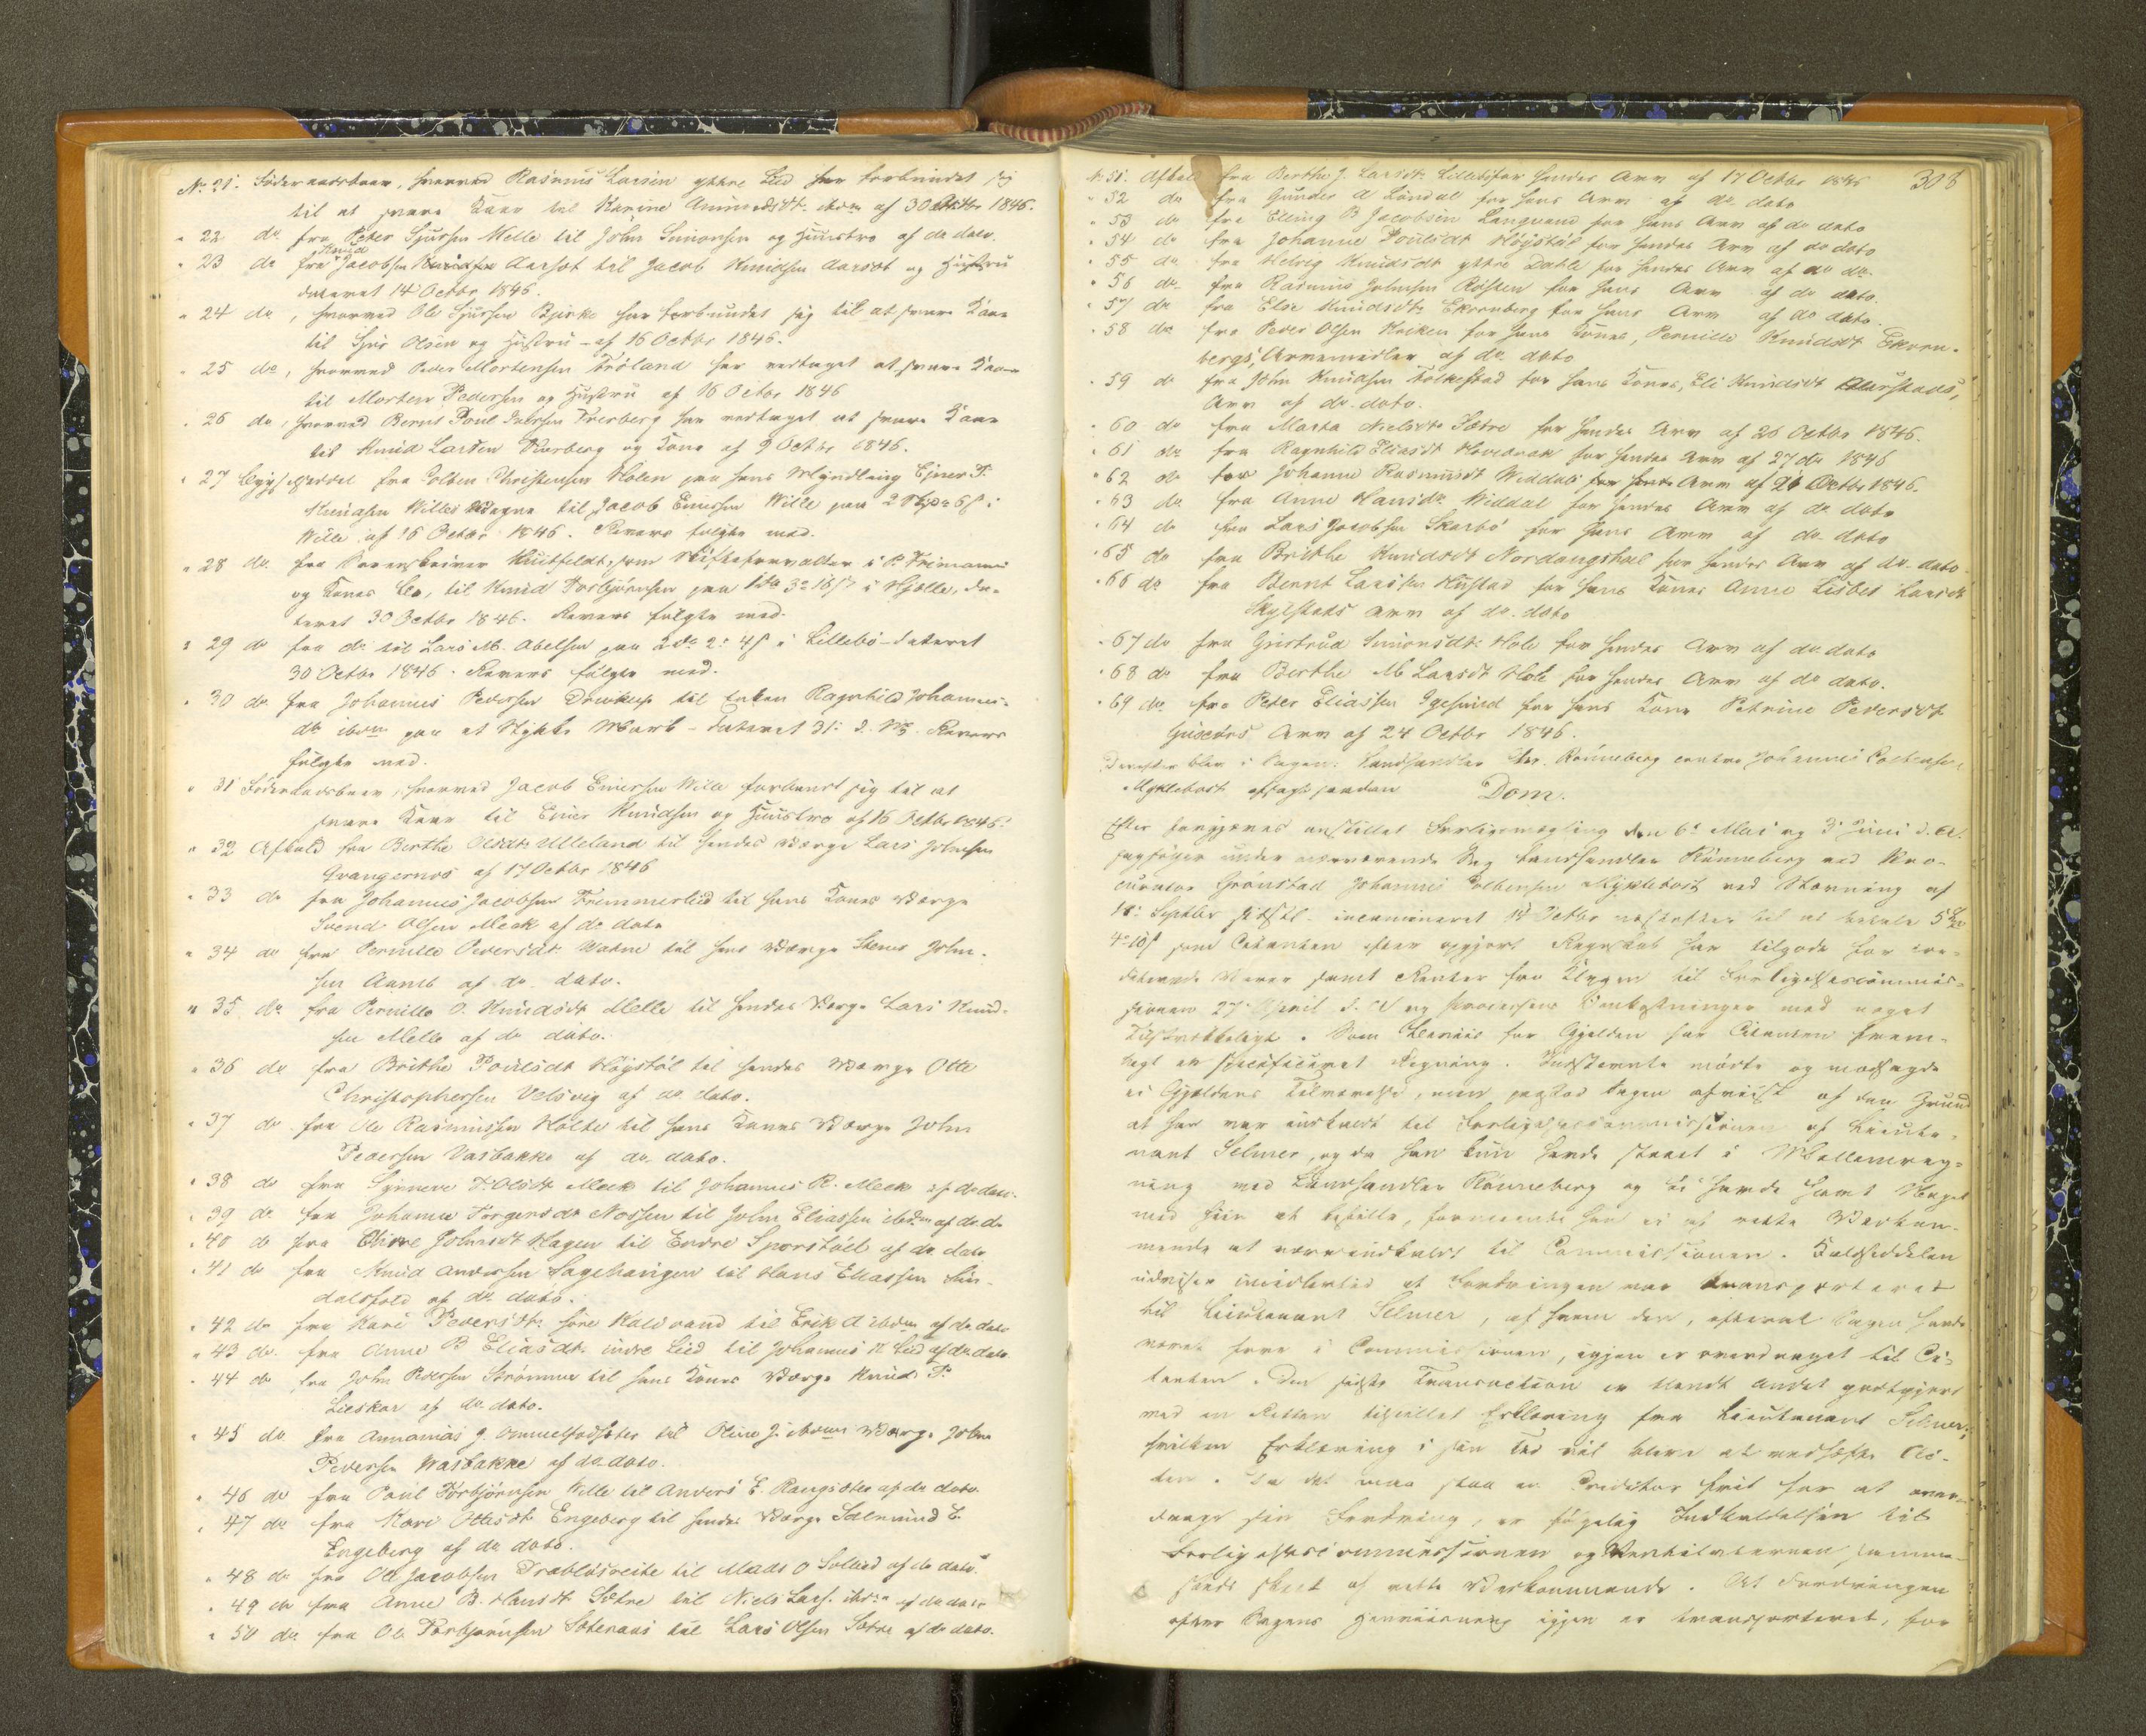 No 21. Föderaadsbrev, hvorved Rasmus Larsen yttre Lied har forbundet sig
til at svare Kaar til Karine Amundsdt. ibdm af 30 Octbr 1846.
" 22 do fra Peder Sjursen Welle til John Simonsen og Huustro af do dato.
" 23 do fra Knud Jacobsen Aarsæt til Jacob Knudsen Aarsæt og Hustru
dateret 14 Octbr 1846.
" 24 do, hvorved Ole Sjursen Bjerke har forbundet sig til at svare Kaar
til Sjur Olsen og Hustru - af 16 Octbr 1846.
" 25 do, hvorved Peder Mortensen Fröland har vedtaget at svare Kaar
til Morten Pedersen og Hustru af 16 Octbr 1846
" 26 do, hvorved Bernt Poul Iversen har vedtaget at svare Kaar
til Knud Larsen og Kone af 9 Octbr 1846.
" 27 Bygselseddel fra Colben Christensen Holen paa hans Myndling Einer P.
Knudsen Willes Vegne til Jacob Einersen Wille paa
Wille af 16 Octbr 1846. Revers fulgte med.
" 28 do fra Sorenskriver Huitfeldt, som Skifteforvalter i P.
og Kones Bo, til Knud Torbjörnsen paa i Hjelle, da-
teret 30 Octbr 1846. Revers fulgte med.
" 29 do fra do til Lars M. Abelsen paa i Lillebö - dateret
30 Octbr 1846. Revers fulgte med.
" 30 do fra Johannes Pedersen til Enken Ragnhild Johannes-
dt ibdm paa et Stykke Mark - dateret 31. Revers
fulgte med.
" 31 Föderaadsbrev, hvorved Jacob Einersen Wille forbandt sig til at
svare Kaar til Einer Knudsen og Huustro af 16 Octbr 1846.
" 32 Afkald fra Berthe Olsdt. Ulleland til hendes Værge Lars Johnsen
af 17 Octbr 1846
" 33 do fra Johannes Jacobsen Fremmerlied til hans Kones Værge
Svend Olsen Meek af do dato
" 34 do fra Pernille Pedersdt. Vatne til hens Værge Stener John-
sen Aamb af do dato.
" 35 do fra Pernille O. Knudsdt Melle til hendes Værge Lars Knud-
sen Melle af do dato.
" 36 do fra Brithe Poulsdt Högstöl til hendes Værge Otte
Christophersen Velsvig af do dato.
" 37 do fra Ole Rasmussen Holte til hans Kones Værge John
Pedersen Vasbakke af do dato.
" 38 do fra Synneve T. Olsdt Meek til Johannes R. Meek af do dato.
" 39 do fra Johanne Torgersdt Nossen til John Eliassen ibdm af do do
" 40 do fra Johnsdt Hagen til Endre Sporstöel af do dato
" 41 do fra Knud Andersen til Hans Eliassen Sin-
dalsfold af do dato.
" 42 do fra Kari Pedersdt. söre Kalvand til Erik A ibdm af do dato
" 43 do fra Anne B Eliasdt. indre Lied til Johannes N Lied af do dato
" 44 do fra John Pedersen Strömme til hans Kones Værge Knud P.
Lieskar af do dato.
" 45 do fra Annanias J. Ommelfodsæter til Oline J. ibdms Værge John
Pedersen Wasbakke af do dato.
" 46 do fra Poul Torbjörnsen Wille til Anders E. Rangsæter af do dato.
" 47 do fra Kari Ottesdt Engeberg til hendes Værge Salmund E.
Engeberg af do dato.
" 48 do fra Ole Jacobsen til Mads O Solied af do dato.
" 49 do fra Anne B. Hansdt. Sætre til Niels Lars. ibdm af do dato
" 50 do fra Ole Torbjörnsen til Lars Olsen Sætre af do dato.
308
No 51. Afkald fra Berthe J. Larsdt. for hendes Arv af 17 Octbr 1846
" 52 do fra Gunder A Löndal for hans Arv af do dato
" 53 do fra Elling B Jacobsen Langvand for hans Arv af do dato
" 54 do fra Johanne Poulsdt Högstöl for hendes Arv af do dato
" 55 do fra Helvig Knudsdt yttre Dahle for hendes Arv af do do.
" 56 do fra Rasmus Johnsen Röjsen for hans Arv af do dato.
" 57 do fra Else Knudsdt. Ekornberg for hans Arv af do dato.
" 58 do fra Peder Olsen for hans Kones, Pernille Knudsdt Ekorn-
bergs, Arvemidler af do dato
" 59 do fra John Knudsen Folkestad for hans Kones, Eli Knudsdt
Arv af do dato.
" 60 do fra Marta Nielsdt. Sætre for hendes Arv af 26 Octbr 1846.
" 61 do fra Ragnhild Eliasdt Hovdenak for hendes Arv af 27 do 1846
" 62 do fra Johanne Rasmusdt Widdal for Arv af 26 Octbr 1846.
" 63 do fra Anne Hansdt. Widdal for hendes Arv af do dato
" 64 do fra Lars Jacobsen Skarbö for hans Arv af do dato
" 65 do fra Brithe Knudsdt Nordangshal for hendes Arv af do dato
" 66 do fra Bernt Larssen Hustad for hans Kones Anne Lisbet Larsdt
Skylstads Arv af do dato
" 67 do fra Gjertrud Simonsdt. Hole for hendes Arv af do dato
" 68 do fra Berthe M Larsdt Hole for hendes Arv af do dato.
" 69 do fra Peter Eliassen Igesund for hans Kone Petrine Pedersdt
Arv af 24 Octbr 1846.
Derefter blev i Sagen: Landhandler Rönneberg contra Johannes
Myklebost afsagt saadan Dom.
Efter forgjæves anstillet Forligsmægling den 6te Mai og 3die Juni d. A.
sagsöger under nærværende Sag Landhandler Rönneberg ved Pro-
curator Grönstad Johannes Colbensen Myklebost ved Stævning af
14. Septbr sidstl. incamineret Octbr næstefter til at betale 5
som Citanten efter opgjort Regnskab har tilgode for cre-
diterede Varer samt Renter fra Klagen til Forligelsescommis-
sionen 27 April d. A og Processens Omkostninger med noget
Tilstrækkeligt. Som Beviis for Gjelden har Citanten frem-
lagt en specificeret Regning. Indstævnte mödte og modsagde
ei Gjeldens Tilværelse, men paastod Sagen afviist af den Grund
at han var indkaldt til Forligelsescommissionen af Lieute-
nant Selmer, og da han kun havde staaet i Mellemreg-
ning med Landhandler Rönneberg og ei havde havt Noget
med hiin at bestille, formeente han ei af rette Vedkom-
mende at være indkaldt til Commissionen. Kaldseddelen
udviser imidlertid at Fordringen var transporteret
til Lieutenant Selmer, af hvem den, efterat Sagen havde
været fore i Commissionen, igjen er overdraget til Ci-
tanten. Den sidste Transaction er blandt Andet godtgjort
med en Retten tilstillet Erklæring fra Lieutenant Selmer,
hvilken Erklæring i sin Tid vil blive at vedhæfte Ac-
ten. Da det maa staa en Creditor frit for at over-
drage sin Fordring, er fölgelig Indkaldelsen til
Forligelsescommissionen og Ventilationen samme-
steds skeet af rette Vedkommende. At Fordringen
efter Sagens Henviisning igjen er transporteret, for